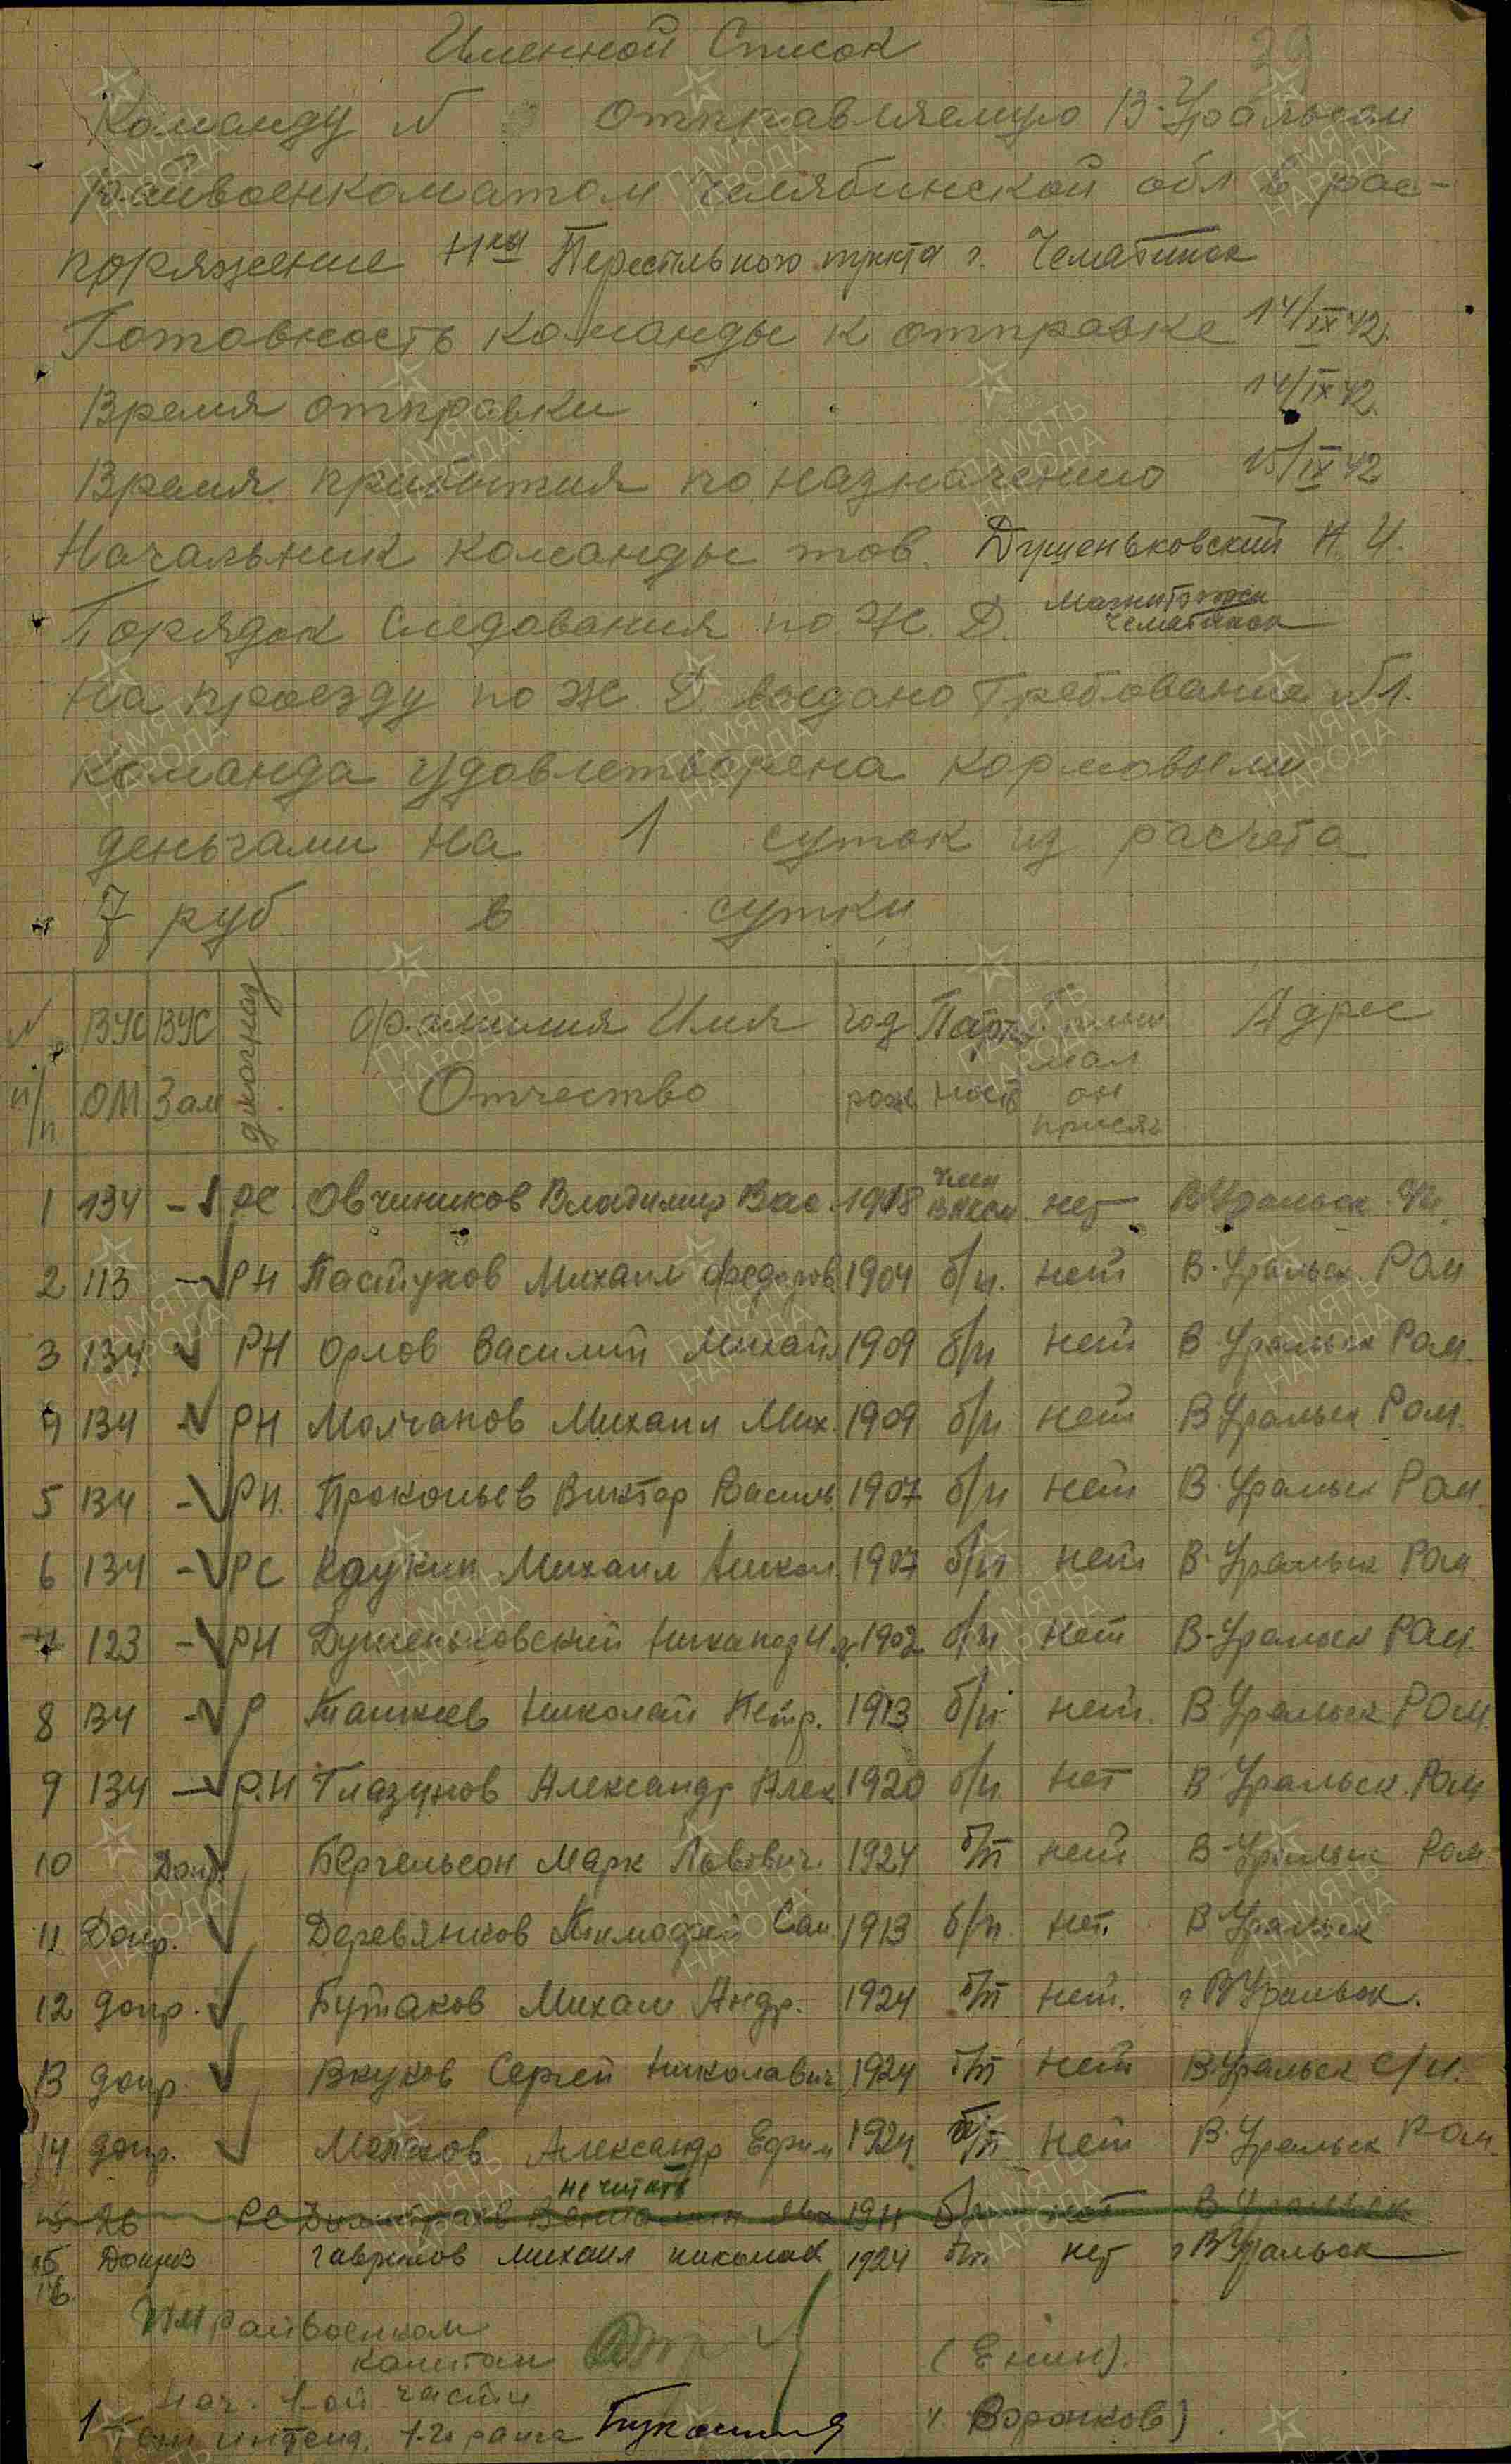 Именной Список
Команду № Отправляемую В-Уральским
Райвоенкоматом Челябинской обл в рас-
поряжение Н-ка Пересыльного пункта г. Чебаркуль
Готовность команды к отправке 14/IX 42.
Время отправки 14/IX 42
Время прибытия по назначению 15/IX 42
Начальник команды тов. Душеньковский Н. И.
Порядок следования по Ж. Д. Магнитогорск
На проезду по Ж. Д. выдано Требование №1.
Команда удовлетворена кормовыми
деньгами на 1 суток из расчета
7 руб в сутки
№ п/п ВУС ОМ ВУС Зам Фамилия Имя Отчество год рож Партийность принимал он присяг Адрес
1 134 – РС Овчиников Владимир Вас. 1918 член ВЛКСМ нет В Уральск
2 113 – РН Пастухов Михаил Федоров 1904 б/п. нет В-Уральск РОМ
3 134 РН Орлов Василий Михайл 1909 б/п нет В Уральск Ром.
4 134 – РН Молчанов Михаил Мих. 1909 б/п нет В Уральск Ром.
5 134 – РН. Прокопьев Виктор Василь 1907 б/п нет В-Уральск Ром.
6 134 – РС Михаил 1907 б/п нет В-Уральск Ром
7 123 – РН Душеньковский Никанор И 1902 б/п нет В-Уральск Ром.
8 134 – Р Николай Петр. 1913 б/п нет. В Уральск РОМ.
9 134 – Р.Н Глазунов Александр Алек 1920 б/п нет В Уральск Ром
10 Допр. Бергельсон Марк Львович 1924 б/п нет В-Уральск Ром
11 Допр. Деревянков Тимофей Сам 1913 б/п. нет. В-Уральск
12 допр. Бутаков Михаил Андр. 1924 б/п нет. г В Уральск.
13 допр. Внуков Сергей Николавич 1924 б/п нет В.Уральск с/п.
14 допр. Малахов Александр Ефим 1924 б/п нет В-Уральск Ром.
не читать
26 РС 1911 б/п нет В Уральск
15 Доприз Гаврилов Михаил Николай 1924 б/п нет г В Уральск
16.
Райвоенком
капитан (Енин).
Нач. 1-ой части
1 интенд. 1-го ранга (Воронков)